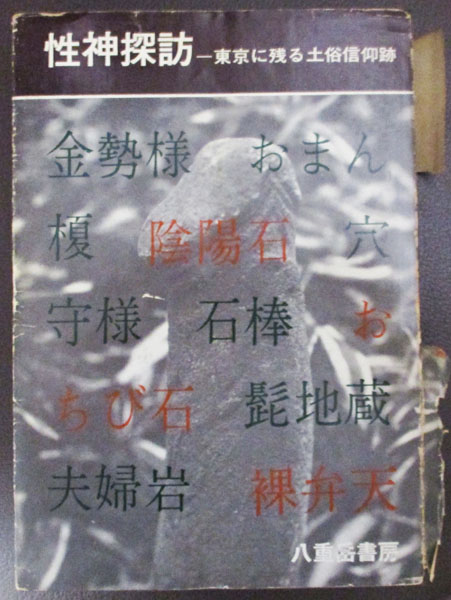 性神探訪―東京に残る土俗信仰跡
金勢様 おまん
榎 陰陽石 穴
守様 石棒 お
ちび石 髭地蔵
夫婦岩 裸弁天
八重岳書房